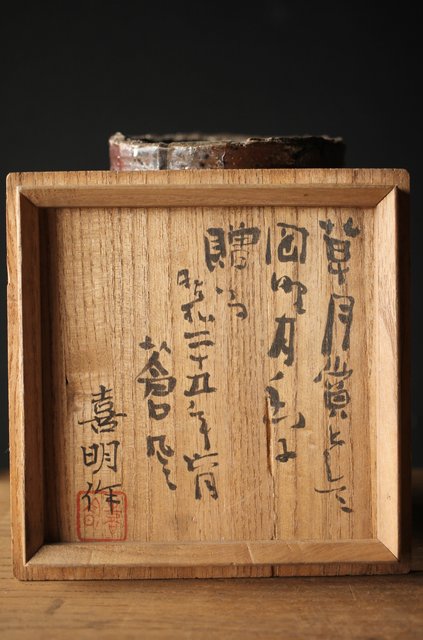 草月賞として
岡野月香に
贈る
昭和二十五年
蒼風
喜明作